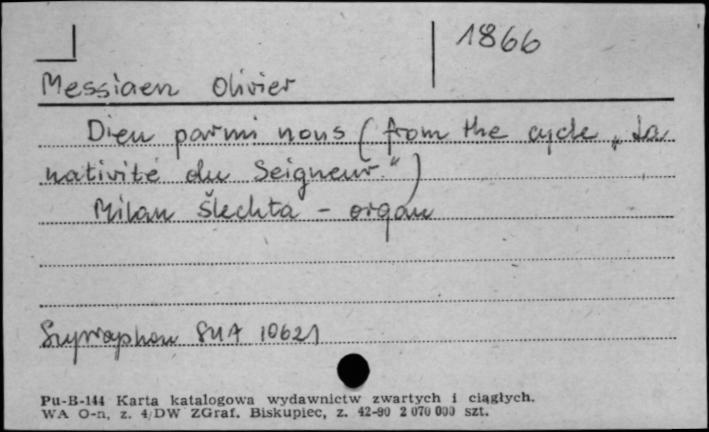 1866
Messiaen Olivier
Dieu parmi nous (from the cycle „La
nativité du Seigneur.")
Milan Šlechta - organ
Supraphon SUA 10621
Pu-B-144 Karta katalogowa wydawnictw zwartych i ciągłych.
WA O-n, z. 4/DW ZGraf. Biskupiec, z. 42-90 2 070 000 szt.